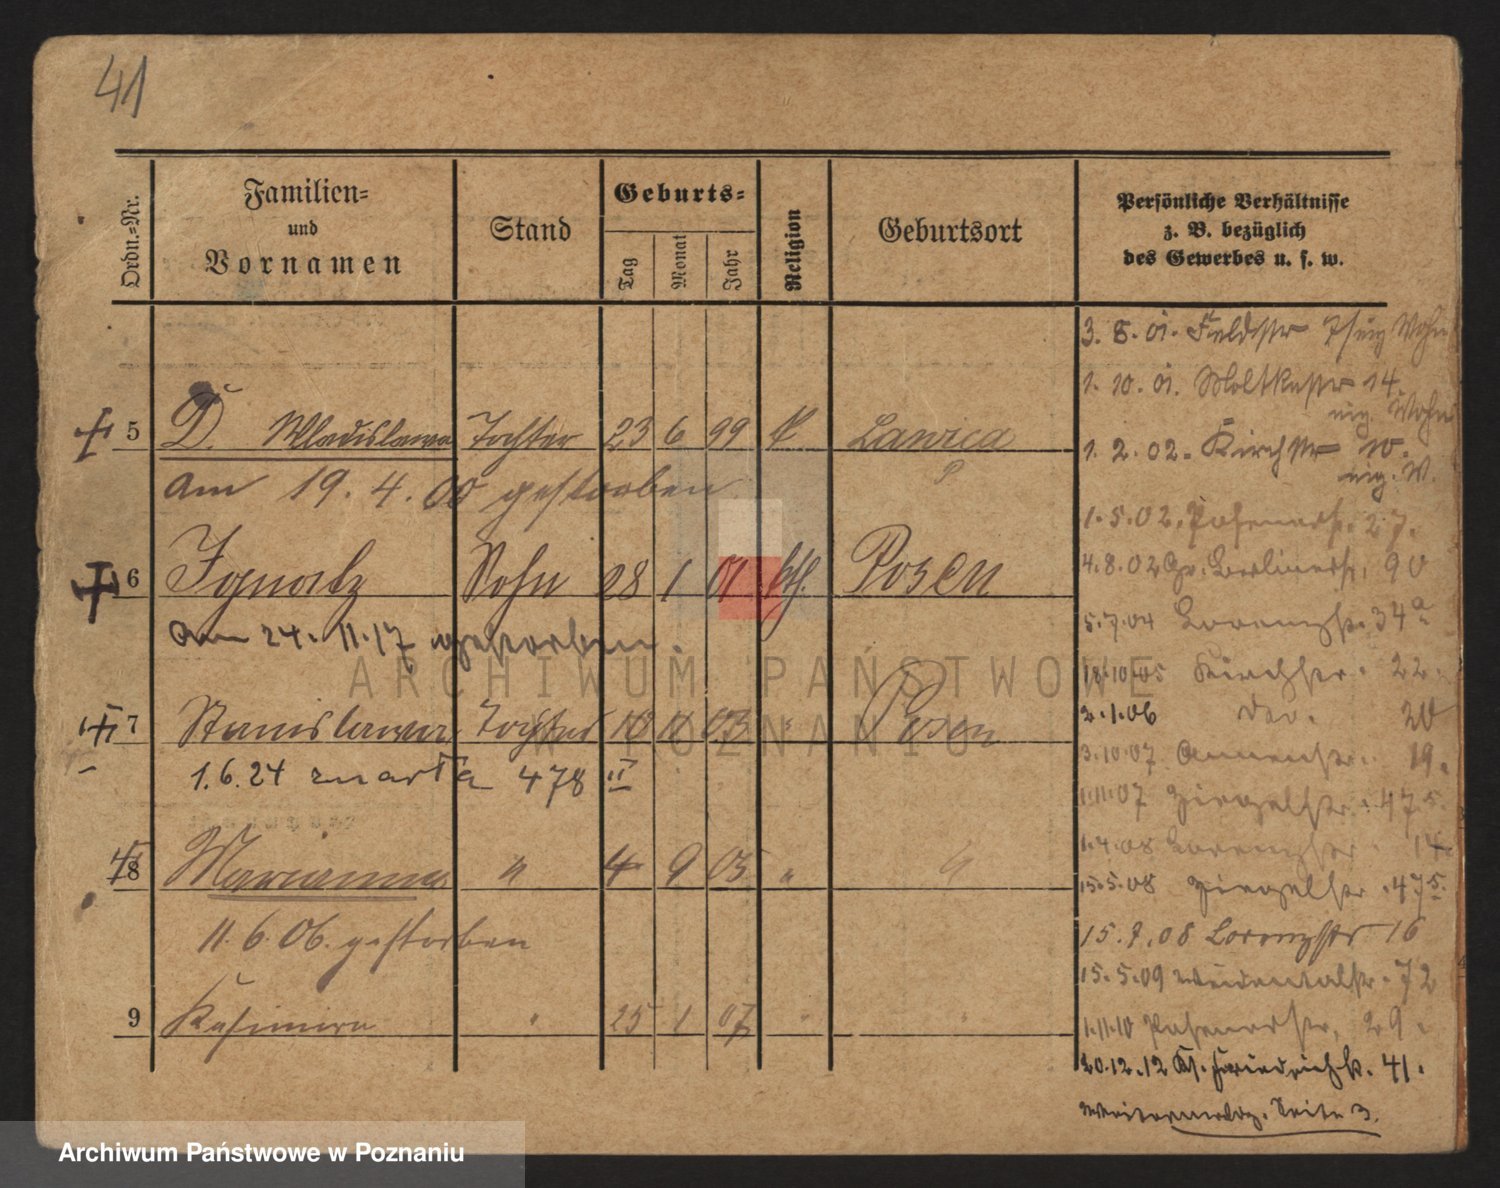 41
Ordn.=Nr.
Familien=
und
Vornamen
Stand
Geburts=
Tag
Monat
Jahr
Religion
Geburtsort
Persönliche Verhältnisse
z. B. bezüglich
des Gewerbes u. s. w.
5 D. Wladislawa Tochter 23 6 99 Lawica
am 19. 4. 00 gestorben
6 Ignatz Sohn 28 1 01 kth. Posen
am 24. 11. 17 gestorben.
7 Stanislawa Tochter 10 11 03 " Posen
1.6.24 zmarła 478 II
8 Marianna " 4 9 05 " "
11. 6. 06. gestorben
9 Kasimira " 25 1 07 " "
3. 8. 01. Feldstr 7 eig Wohn
1. 10. 01. Moltkestr 14.
eig. Wohn
1. 2. 02. Kirchstr 10.
eig. W.
1. 5. 02. Posenerstr. 27.
4. 8. 02 Gr. Berlinerstr. 90
5.7.04 Lorenzstr. 34a
18.10.05 Kirchstr. 22.
2.1.06 20
3.10.07 Annenstr. 19.
1.11.07 Ziegelstr. 475.
1.4.08 Lorenzstr. 14.
15.5.08 Ziegelstr. 475.
15.7.08 Lorenzstr 16
15.5.09 Weidentalstr. 72
1.11.10 Posenerstr. 29.
20.12.12 Friedrichstr. 41.
Seite 3.
ARCHIWUM PAŃSTWOWE
W POZNANIU
Archiwum Państwowe w Poznaniu